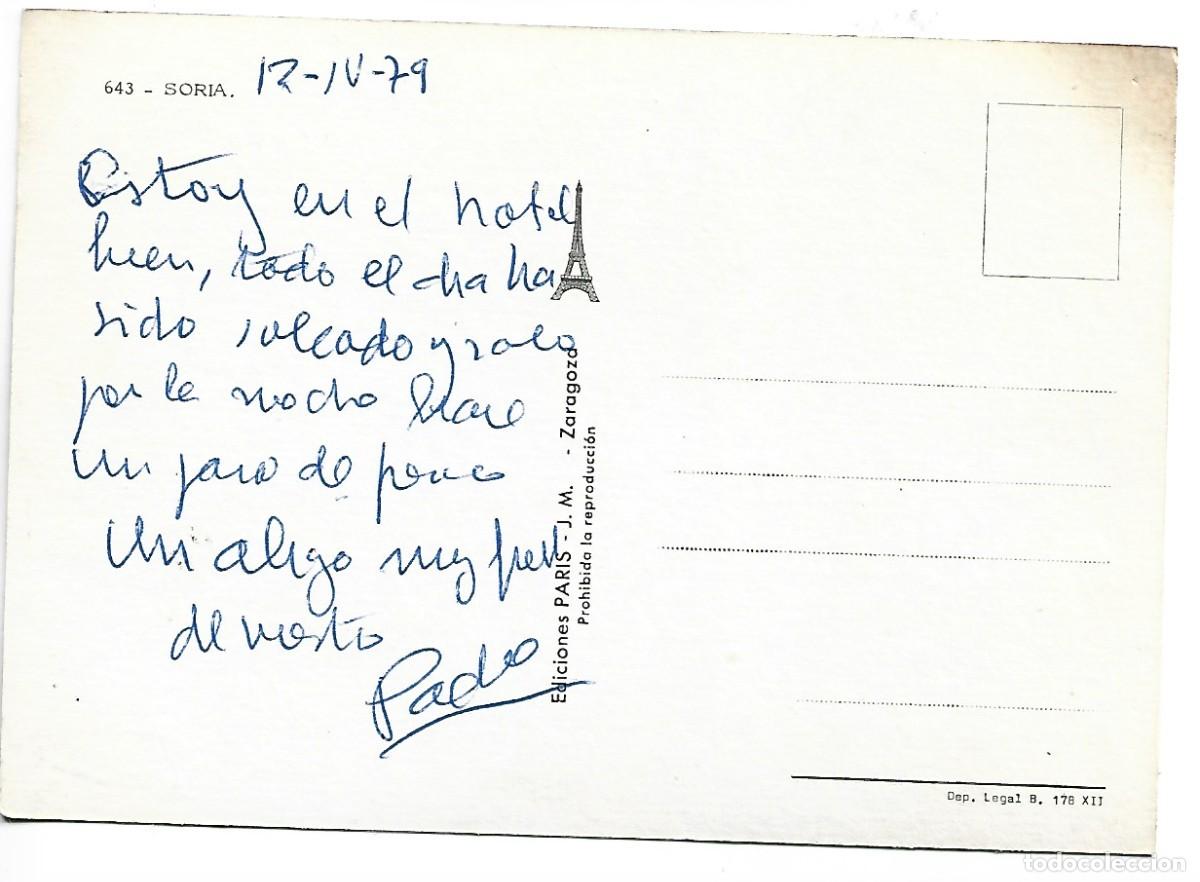 643 - SORIA. 12-IV-79
Estoy en el hotel
bien, todo el dia ha
sido soleado y solo
por la noche hace
un poco de fresco
Un abrazo muy fuerte
de vuestro
Padre
Ediciones PARIS - J. M. - Zaragoza
Prohibida la reproducción
Dep. Legal B. 178 XII
todocoleccion